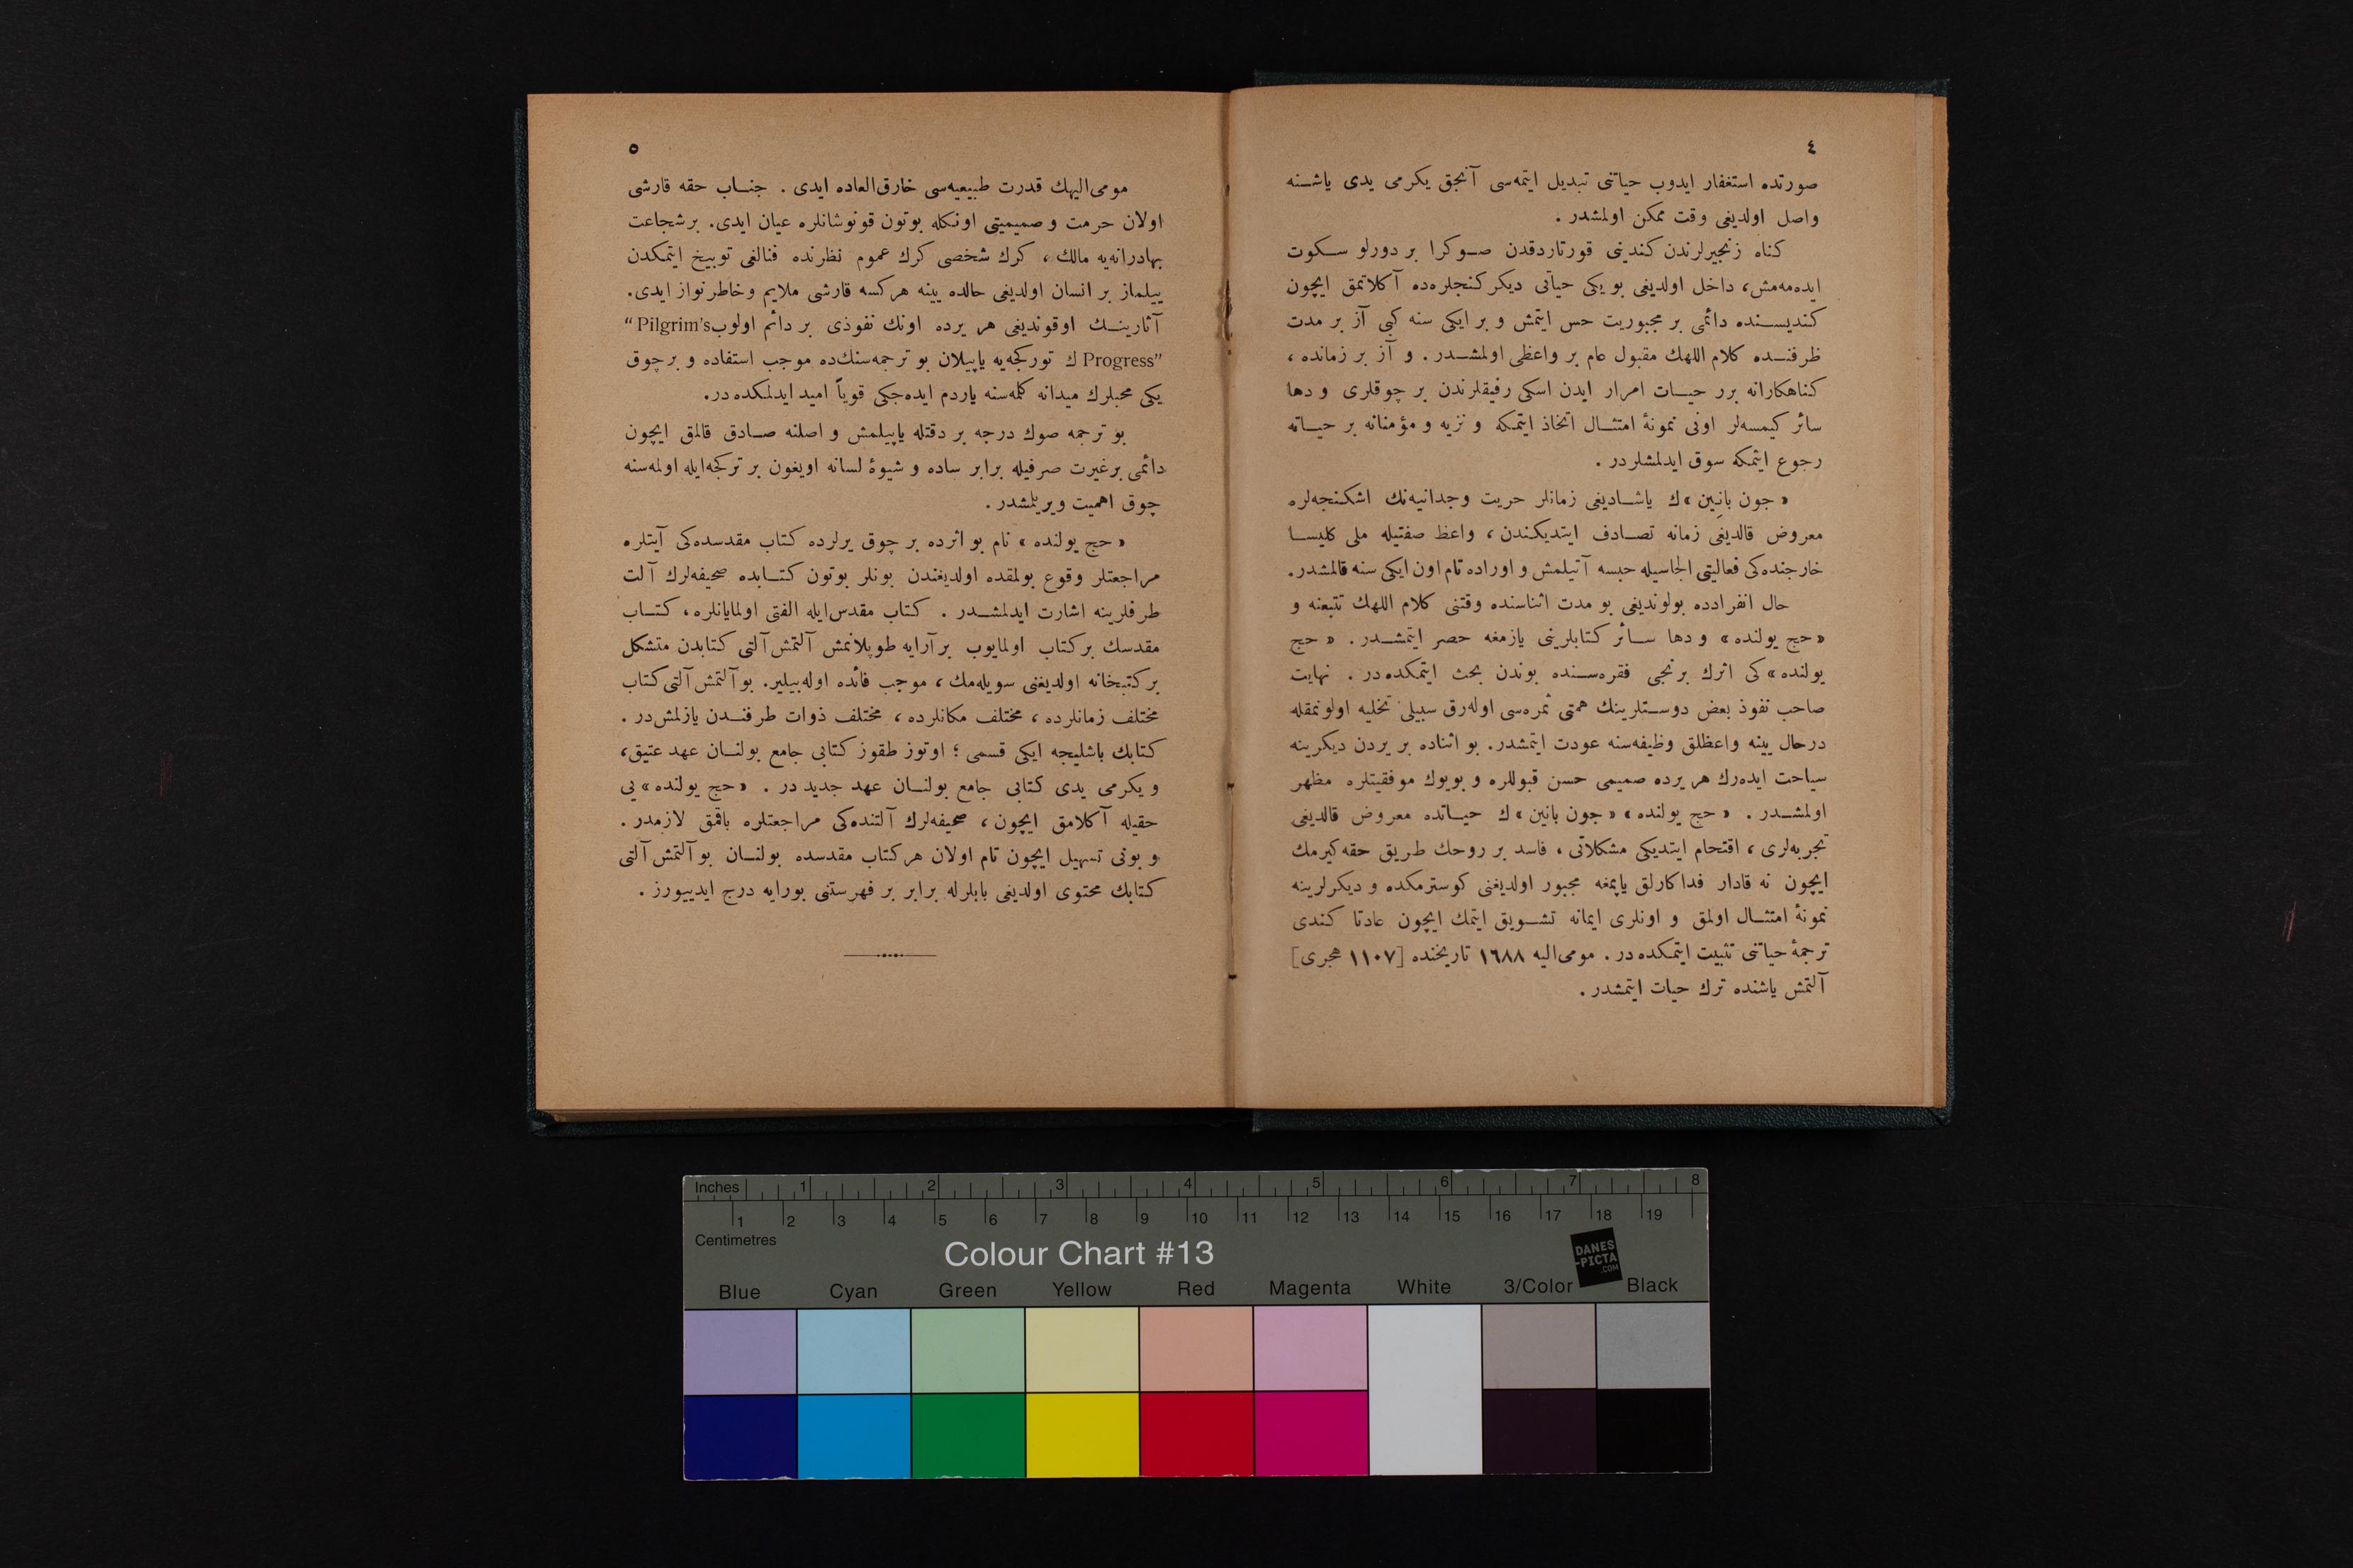 ٤
صورتده استغفار ایدوب حیاتنی تبدیل ایتمه‌سی آنجق یكرمی یدی یاشنه
واصل اولدیغی وقت ممكن اولمشدر .
كناه زنجیرلرندن كندینی قورتاردقدن صوكرا بر دورلو سكوت
ایده‌مه‌مش، داخل اولدیغی بو یكی حیاتی دیكر كنجلره‌ده آكلاتمق ایچون
كندیسنده دائمی بر مجبوریت حس ایتمش و بر ایكی سنه كبی آز بر مدت
ظرفنده كلام اللهك مقبول عام بر واعظی اولمشدر . و آز بر زمانده ،
كناهكارانه برر حیات امرار ایدن اسكی رفیقلرندن بر چوقلری و دها
سائر كیمسه‌لر اونی نمونۀ امتثال اتخاذ ایتمكه و نزیه و مؤمنانه بر حیاته
رجوع ایتمكه سوق ایدلمشلردر .
« جون بانین » ك یاشادیغی زمانلر حریت وجدانیه‌نك اشكنجه‌لره
معروض قالدیغی زمانه تصادف ایتدیكندن ، واعظ صفتیله ملی كلیسا
خارجنده‌كی فعالیتی الجاسیله حبسه آتیلمش و اوراده تام اون ایكی سنه قالمشدر.
حال انفرادده بولوندیغی بو مدت اثناسنده وقتنی كلام اللهك تتبعنه و
« حج یولنده » و دها سائر كتابلرینی یازمغه حصر ایتمشدر . « حج
یولنده » كی اثرك برنجی فقره‌سنده بوندن بحث ایتمكده در . نهایت
صاحب نفوذ بعض دوستلرینك همتی ثمره‌سی اوله‌رق سبیلی تخلیه اولونمقله
درحال یینه واعظلق وظیفه‌سنه عودت ایتمشدر. بو اثناده بر یردن دیكرینه
سیاحت ایده‌رك هر یرده صمیمی حسن قبوللره و بویوك موفقیتلره مظهر
اولمشدر . « حج یولنده » « جون بانین » ك حیاتده معروض قالدیغی
تجربه‌لری ، اقتحام ایتدیكی مشكلاتی ، فاسد بر روحك طریق حقه كیرمك
ایچون نه قادار فداكارلق یاپمغه مجبور اولدیغنی كوسترمكده و دیكرلرینه
نمونۀ امتثال اولمق و اونلری ایمانه تشویق ایتمك ایچون عادتا كندی
ترجمۀ حیاتنی تثبیت ایتمكده در . مومی‌الیه ١٦٨٨ تاریخنده [١١٠٧ هجری]
آلتمش یاشنده ترك حیات ایتمشدر .
٥
مومی‌الیهك قدرت طبیعیه‌سی خارق‌العاده ایدی . جناب حقه قارشی
اولان حرمت و صمیمیتی اونكله بوتون قونوشانلره عیان ایدی. بر شجاعت
بهادرانه‌یه مالك ، كرك شخصی كرك عموم نظرنده فنالغی توبیخ ایتمكدن
ییلماز بر انسان اولدیغی حالده یینه هركسه قارشی ملایم و خاطر نواز ایدی.
آثارینك اوقوندیغی هر یرده اونك نفوذی بر دائم اولوب “Pilgrim's
Progress” ك توركجه‌یه یاپیلان بو ترجمه‌سنك‌ده موجب استفاده و بر چوق
یكی محبلرك میدانه كلمه‌سنه یاردم ایده‌جكی قویاً امید ایدلمكده در.
بو ترجمه صوك درجه بر دقتله یاپیلمش و اصلنه صادق قالمق ایچون
دائمی برغیرت صرفیله برابر ساده و شیوۀ لسانه اویغون بر تركجه‌ایله اولمه‌سنه
چوق اهمیت ویریلمشدر .
« حج یولنده » نام بو اثرده بر چوق یرلرده كتاب مقدسده‌كی آیتلره
مراجعتلر وقوع بولمقده اولدیغندن بونلر بوتون كتابده صحیفه‌لرك آلت
طرفلرینه اشارت ایدلمشدر . كتاب مقدس‌ایله الفتی اولمایانلره ، كتاب
مقدسك بر كتاب اولمایوب بر آرایه طوپلانمش آلتمش آلتی كتابدن متشكل
بر كتبخانه اولدیغنی سویله‌مك ، موجب فائده اوله‌بیلیر. بو آلتمش آلتی كتاب
مختلف زمانلرده ، مختلف مكانلرده ، مختلف ذوات طرفندن یازلمش‌در .
كتابك باشلیجه ایكی قسمی ؛ اوتوز طقوز كتابی جامع بولنان عهد عتیق،
و یكرمی یدی كتابی جامع بولنان عهد جدید در . « حج یولنده » یی
حقیله آكلامق ایچون ، صحیفه‌لرك آلتنده‌كی مراجعتلره باقمق لازمدر .
و بونی تسهیل ایچون تام اولان هر كتاب مقدسده بولنان بو آلتمش آلتی
كتابك محتوی اولدیغی بابلرله برابر بر فهرستنی بورایه درج ایدییورز .
Inches 1 2 3 4 5 6 7 8
1 2 3 4 5 6 7 8 9 10 11 12 13 14 15 16 17 18 19
Centimetres
Colour Chart #13
DANES
-PICTA
.COM
Blue Cyan Green Yellow Red Magenta White 3/Color Black